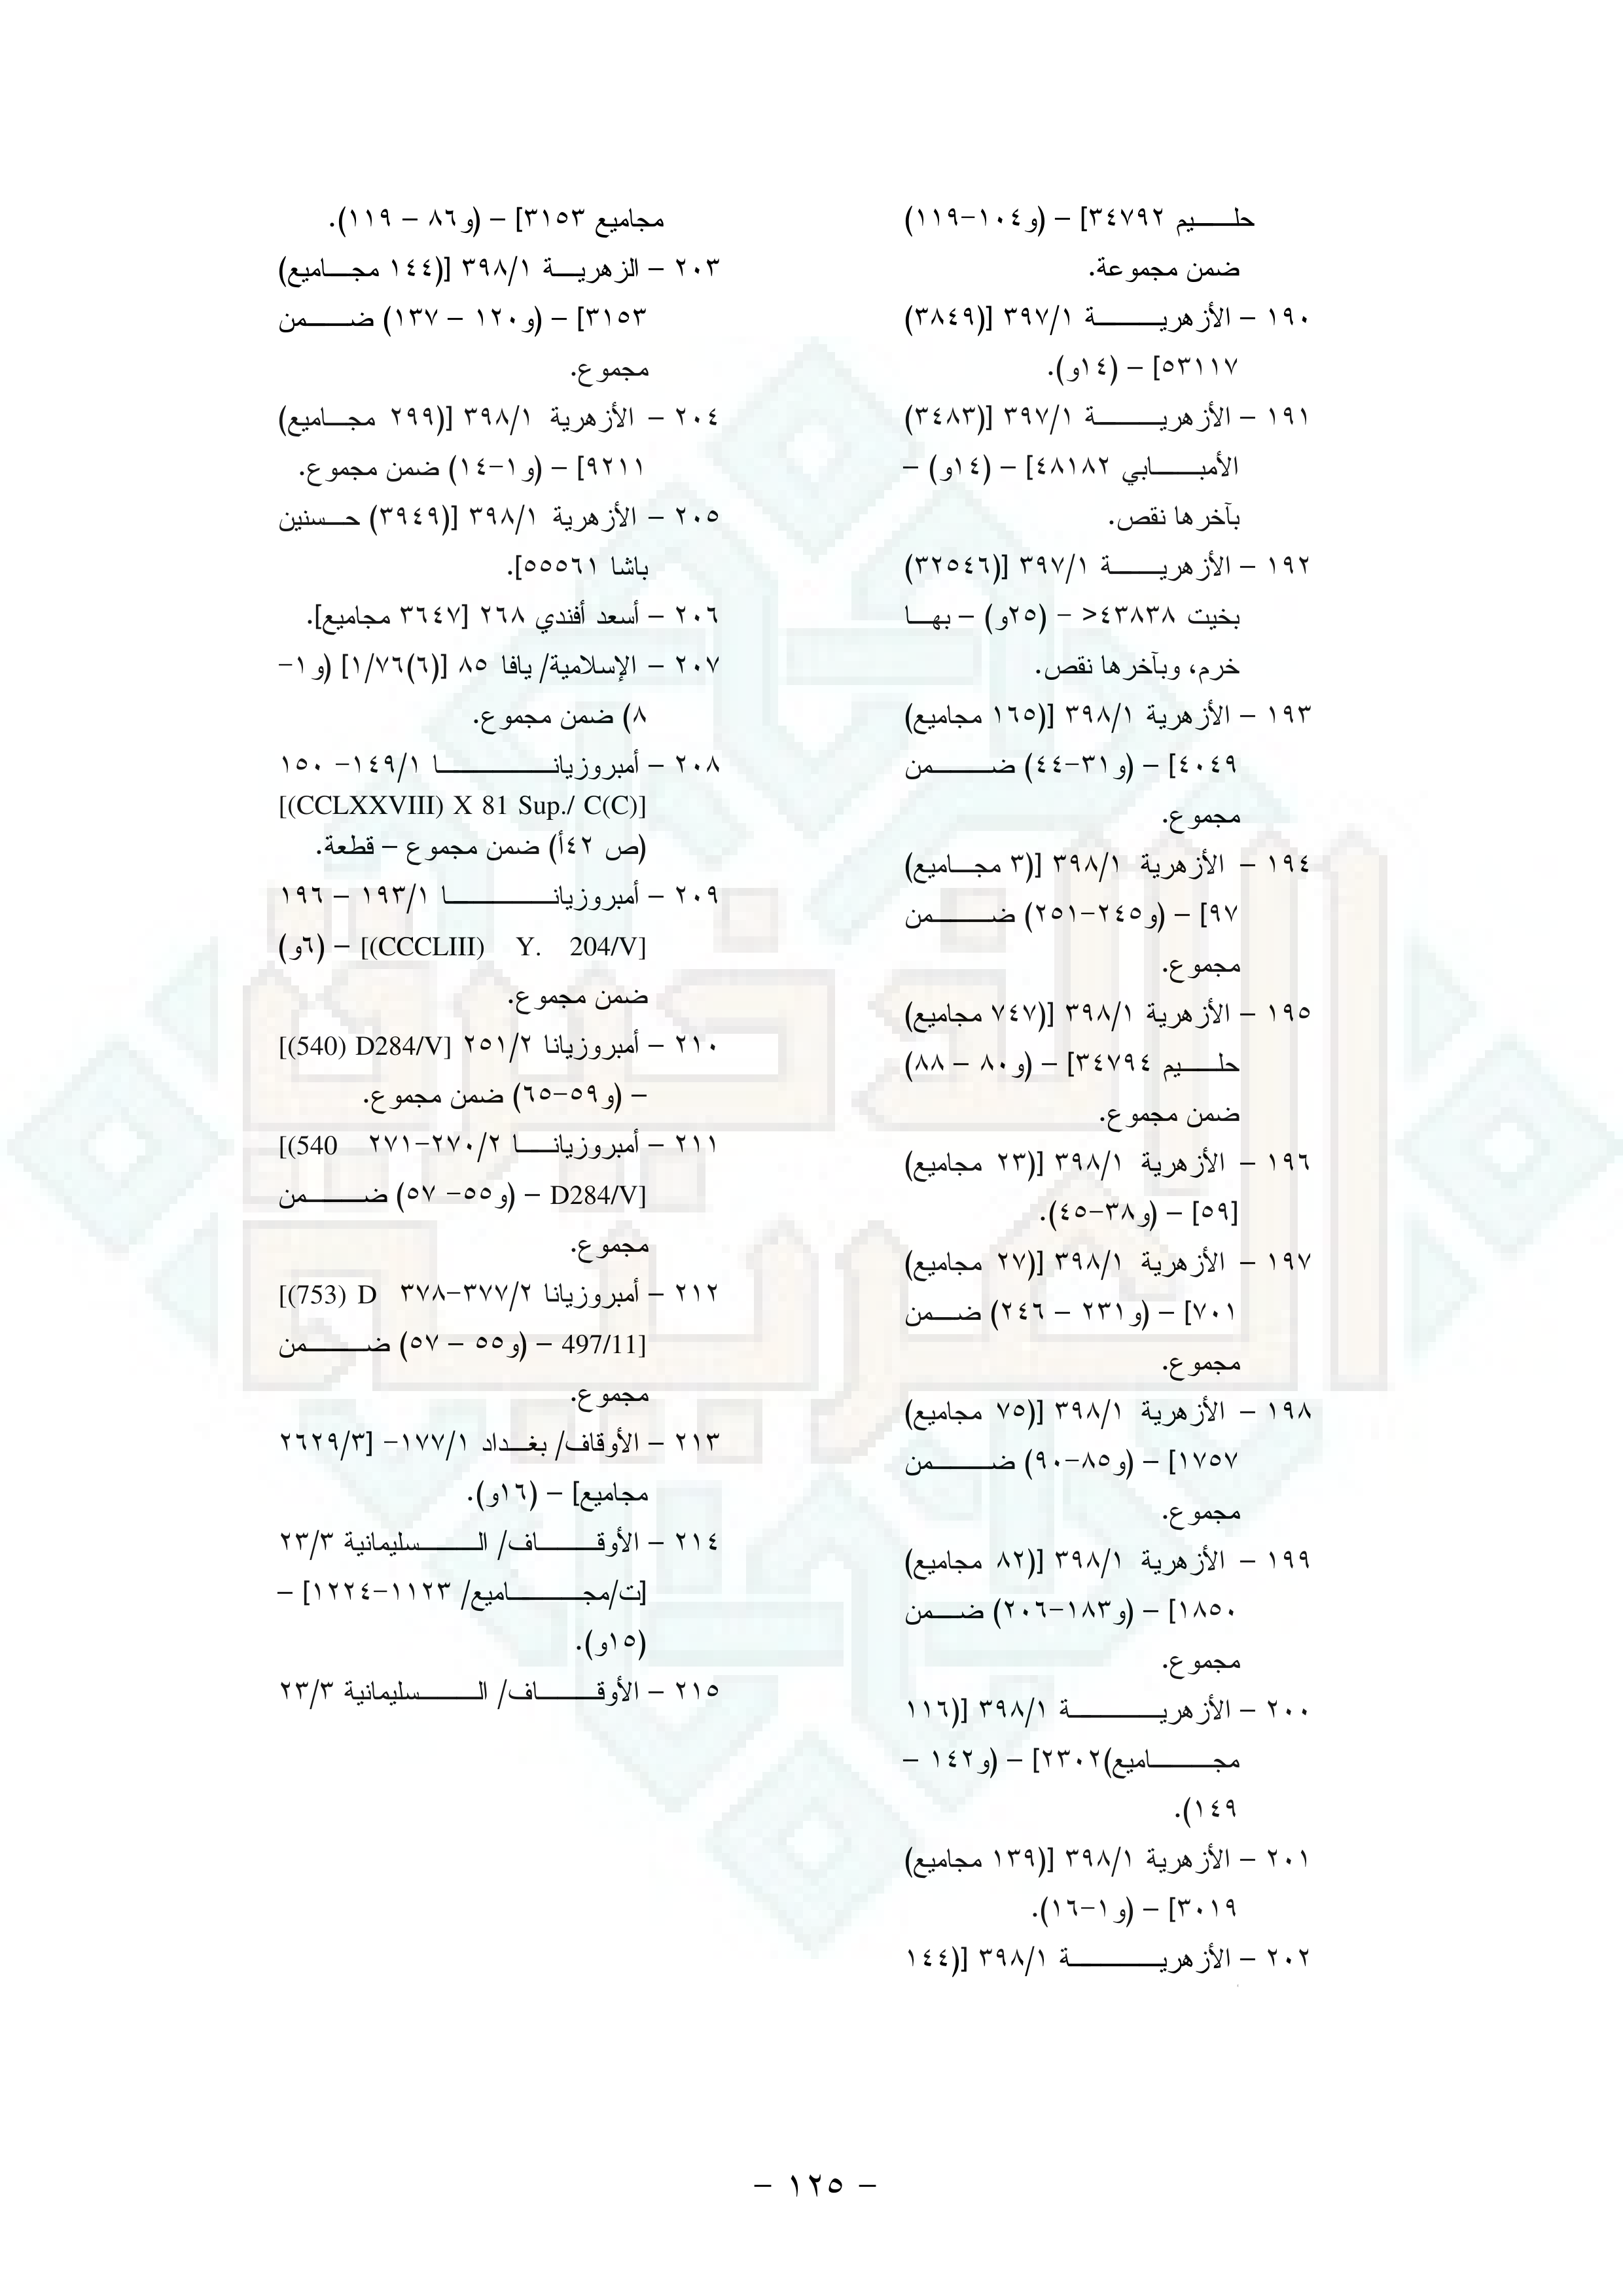 حليم ٣٤٧٩٢] – (و١٠٤-١١٩)
ضمن مجموعة.
١٩٠ – الأزهرية ٣٩٧/١ [(٣٨٤٩)
٥٣١١٧] – (١٤و).
١٩١ – الأزهرية ٣٩٧/١ [(٣٤٨٣)
الأمبابي ٤٨١٨٢] – (١٤و) –
بآخرها نقص.
١٩٢ – الأزهرية ٣٩٧/١ [(٣٢٥٤٦)
بخيت ٤٣٨٣٨< – (٢٥و) – بها
خرم، وبآخرها نقص.
١٩٣ – الأزهرية ٣٩٨/١ [(١٦٥ مجاميع)
٤٠٤٩] – (و٣١-٤٤) ضمن
مجموع.
١٩٤ – الأزهرية ٣٩٨/١ [(٣ مجاميع)
٩٧] – (و٢٤٥-٢٥١) ضمن
مجموع.
١٩٥ – الأزهرية ٣٩٨/١ [(٧٤٧ مجاميع)
حليم ٣٤٧٩٤] – (و٨٠ – ٨٨)
ضمن مجموع.
١٩٦ – الأزهرية ٣٩٨/١ [(٢٣ مجاميع)
[٥٩] – (و٣٨-٤٥).
١٩٧ – الأزهرية ٣٩٨/١ [(٢٧ مجاميع)
٧٠١] – (و٢٣١ – ٢٤٦) ضمن
مجموع.
١٩٨ – الأزهرية ٣٩٨/١ [(٧٥ مجاميع)
١٧٥٧] – (و٨٥-٩٠) ضمن
مجموع.
١٩٩ – الأزهرية ٣٩٨/١ [(٨٢ مجاميع)
١٨٥٠] – (و١٨٣-٢٠٦) ضمن
مجموع.
٢٠٠ – الأزهرية ٣٩٨/١ [(١١٦
مجاميع)٢٣٠٢] – (و١٤٢ –
١٤٩).
٢٠١ – الأزهرية ٣٩٨/١ [(١٣٩ مجاميع)
٣٠١٩] – (و١-١٦).
٢٠٢ – الأزهرية ٣٩٨/١ [(١٤٤
مجاميع ٣١٥٣] – (و٨٦ – ١١٩).
٢٠٣ – الزهرية ٣٩٨/١ [(١٤٤ مجاميع)
٣١٥٣] – (و١٢٠ – ١٣٧) ضمن
مجموع.
٢٠٤ – الأزهرية ٣٩٨/١ [(٢٩٩ مجاميع)
٩٢١١] – (و١-١٤) ضمن مجموع.
٢٠٥ – الأزهرية ٣٩٨/١ [(٣٩٤٩) حسنين
باشا ٥٥٥٦١].
٢٠٦ – أسعد أفندي ٢٦٨ [٣٦٤٧ مجاميع].
٢٠٧ – الإسلامية/ يافا ٨٥ [(٦)١/٧٦] (و١-
٨) ضمن مجموع.
٢٠٨ – أمبروزيانا ١٤٩/١- ١٥٠
[(CCLXXVIII) X 81 Sup./ C(C)]
(ص ٤٢أ) ضمن مجموع – قطعة.
٢٠٩ – أمبروزيانا ١٩٣/١ – ١٩٦
[(CCCLIII) Y. 204/V] – (٦و)
ضمن مجموع.
٢١٠ – أمبروزيانا ٢٥١/٢ [(540) D284/V]
– (و٥٩-٦٥) ضمن مجموع.
٢١١ – أمبروزيانا ٢٧٠/٢-٢٧١ [(540
D284/V] – (و٥٥- ٥٧) ضمن
مجموع.
٢١٢ – أمبروزيانا ٣٧٧/٢-٣٧٨ [(753) D
497/11] – (و٥٥ – ٥٧) ضمن
مجموع.
٢١٣ – الأوقاف/ بغداد ١٧٧/١- [٢٦٢٩/٣
مجاميع] – (١٦و).
٢١٤ – الأوقاف/ السليمانية ٢٣/٣
[ت/مجاميع/ ١١٢٣-١٢٢٤] –
(١٥و).
٢١٥ – الأوقاف/ السليمانية ٢٣/٣
– ١٢٥ –